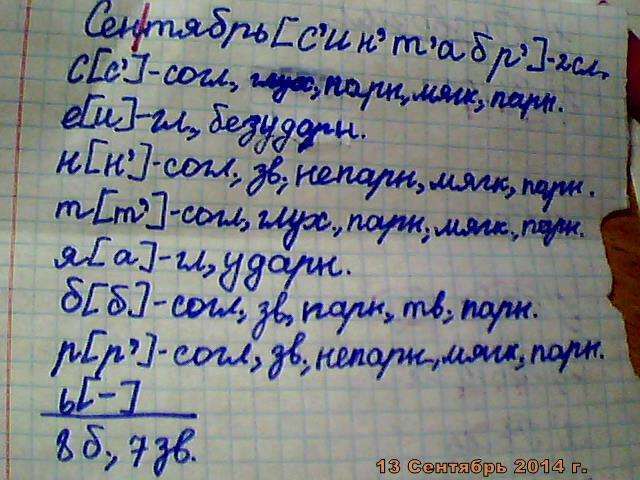 Сентябрь [с'ин'т'абр']-2сл.
с[с']-согл, глух, парн, мягк, парн.
е[и]-гл, безударн.
н[н']-согл, зв, непарн, мягк, парн.
т[т']-согл, глух., парн, мягк, парн.
я[а]-гл, ударн.
б[б]-согл, зв, парн, тв, парн.
р[р']-согл, зв, непарн, мягк, парн.
ь[-]
8б., 7зв.
13 Сентябрь 2014 г.